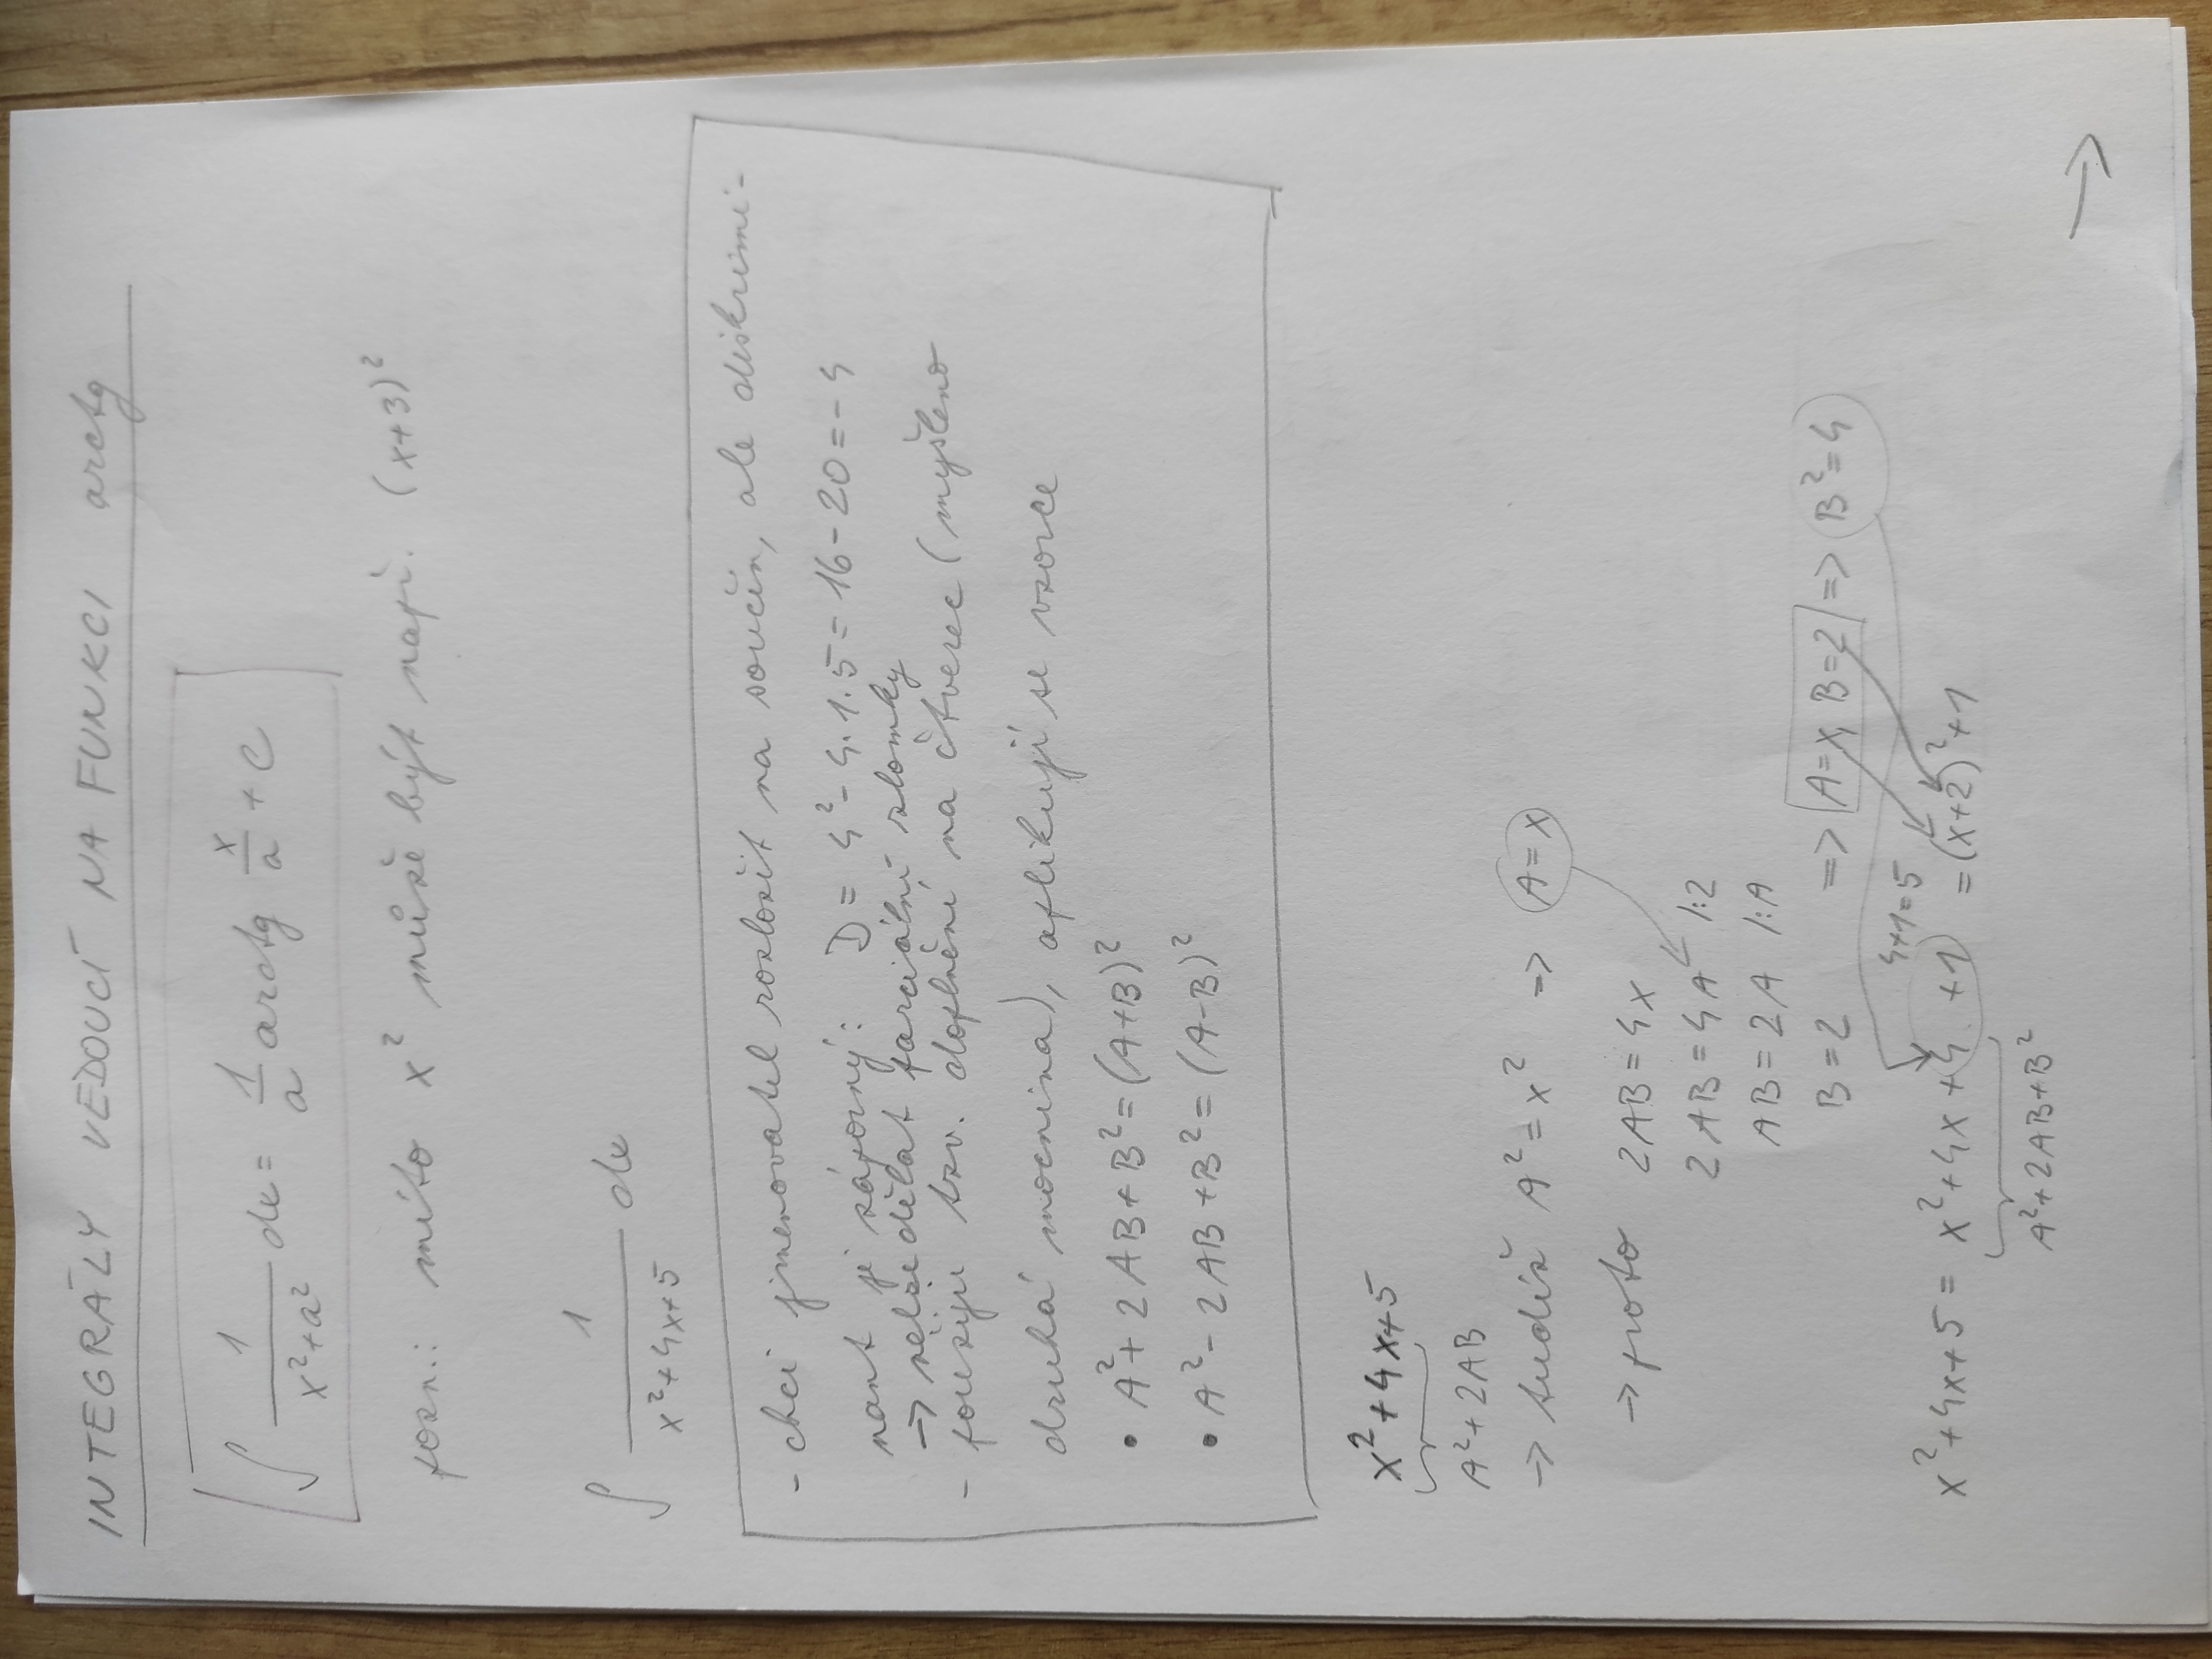 INTEGRÁLY VEDOUCÍ NA FUNKCI arctg
∫ 1/(x²+a²) dx = 1/a arctg x/a + C
pozn: místo x² může být např. (x+3)²
∫ 1/(x²+4x+5) dx
- chci jmenovatel rozložit na součin, ale diskrimi-
nant je záporný: D = 4² - 4.1.5 = 16 - 20 = -4
→ nelze dělat parciální zlomky
- použiji tzv. doplnění na čtverec (myšleno
druhá mocnina), aplikují se vzorce
• A² + 2AB + B² = (A+B)²
• A² - 2AB + B² = (A-B)²
x² + 4x + 5
A² + 2AB
→ tudíž A² = x² => A = x
→ proto 2AB = 4x
2AB = 4A /:2
AB = 2A /:A
B = 2 => A = x, B = 2 => B² = 4
4+1=5
x² + 4x + 5 = x² + 4x + 4 + 1 = (x+2)² + 1
A² + 2AB + B²
→